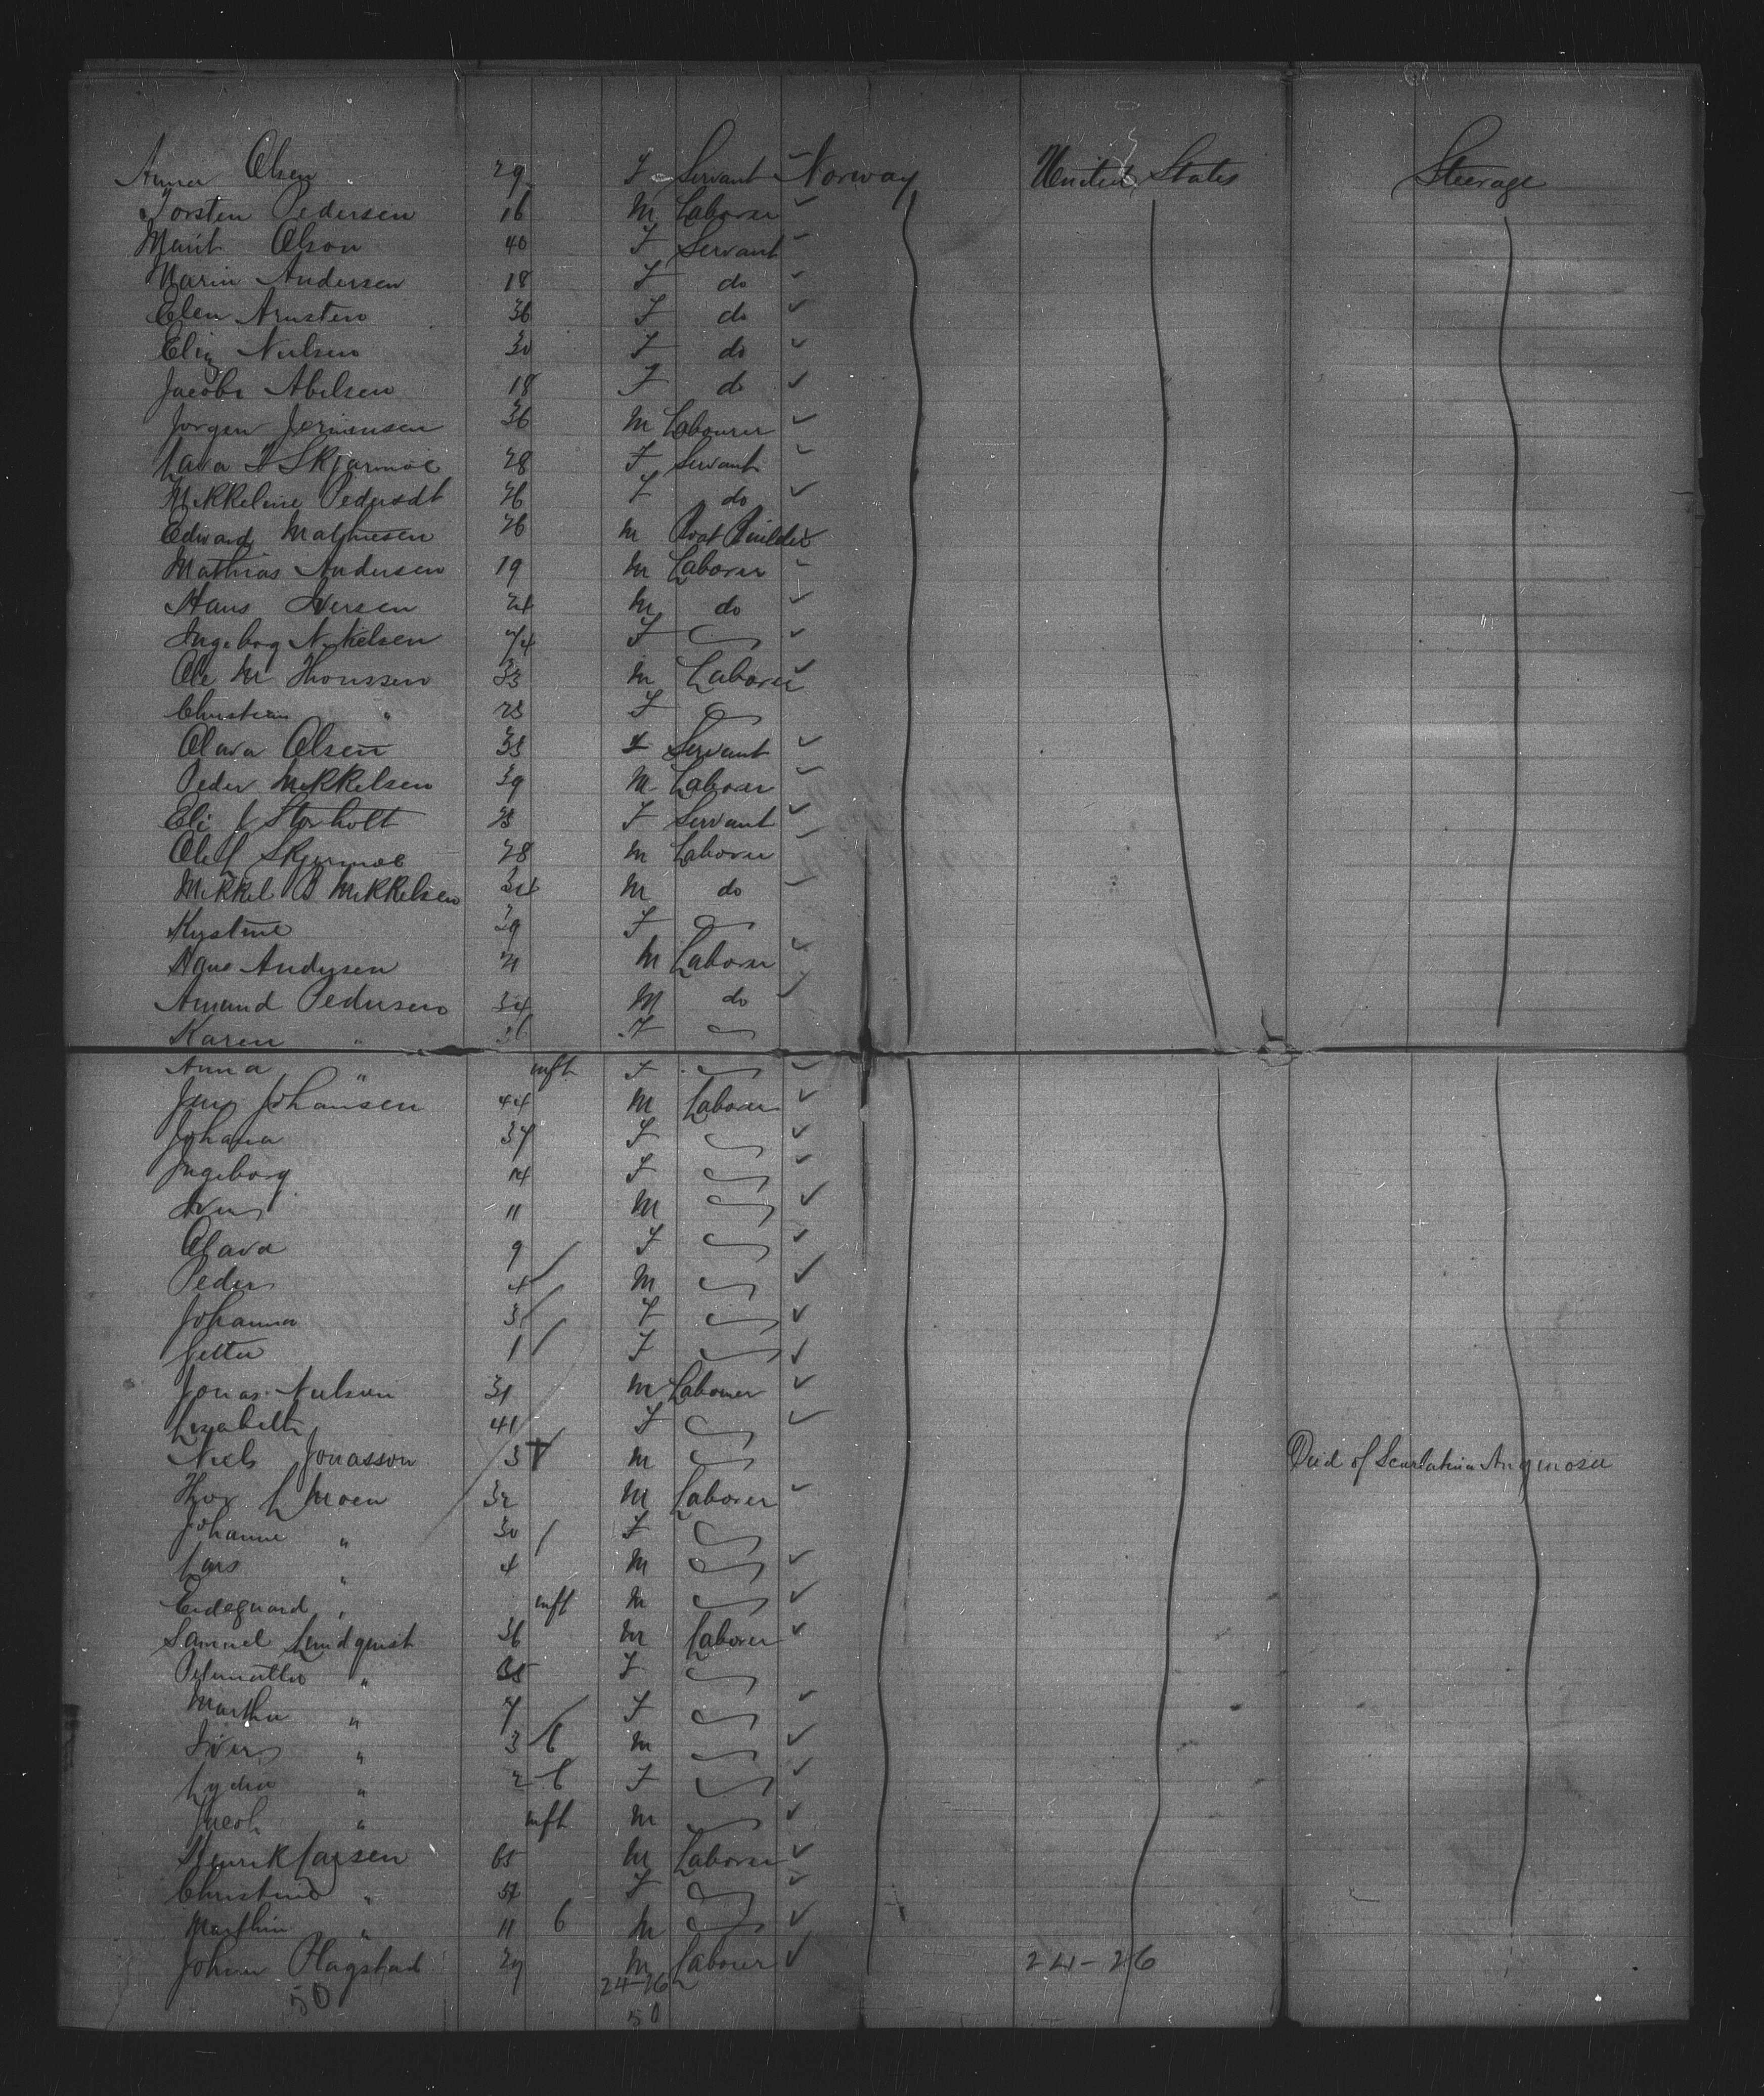 Anna Olsen 29 F Servant Norway United States Steerage
Torsten Pedersen 16 M Laborer
Marit Olson 40 F Servant
Maria Andersen 18 F do
Elen Arnsten 36 F do
Nielsen 30 F do
Jacobi Abelsen 18 F do
Jorgen 36 M Labourer
Skjarmoe 28 F Servant
Mikkeline 26 F do
Edward Mathiesen 26 M Boat Builder
Mathias Andersen 19 M Laborer
Hans Iversen M do
Ingeborg 74 F
Ole M Thomssen 33 M Laborer
Christian " 23 F
Olava Olsen 33 F Servant
Peder Mikkelsen 39 M Laborer
Eli Storholt F Servant
Olef Skjermoe 28 M Laborer
Mikkel B Mikkelsen 34 M do
Kristine 29 F
Hans Andersen 21 M Laborer
Amund Pedersen 34 M do
Karen " 36 F
Anna " inft F
Jens Johansen 44 M Laborer
Johana 37 F
Ingeborg 14 F
Iver 11 M
Olava 9 F
Peder 4 M
Johanna 3 F
1 F
Jonas Nielsen 31 M Labourer
Lisabeth 41 F
Niels Jonasson 3 M Died of Scarlatina Anginosa
Thor L Moen 32 M Laborer
Johanne " 30 F
Lars " 4 M
" inft M
Samuel Lundquist 36 M Laborer
" 35 F
Martha " 7 F
Iver " 3 6 M
Lydia " 2 6 F
Jacob " inft M
Henrik Larsen 65 M Laborer
Christine " 57 F
Marthin " 11 6 M
Johan Hagstad 29 M Laborer 24-26
50 24-26
50